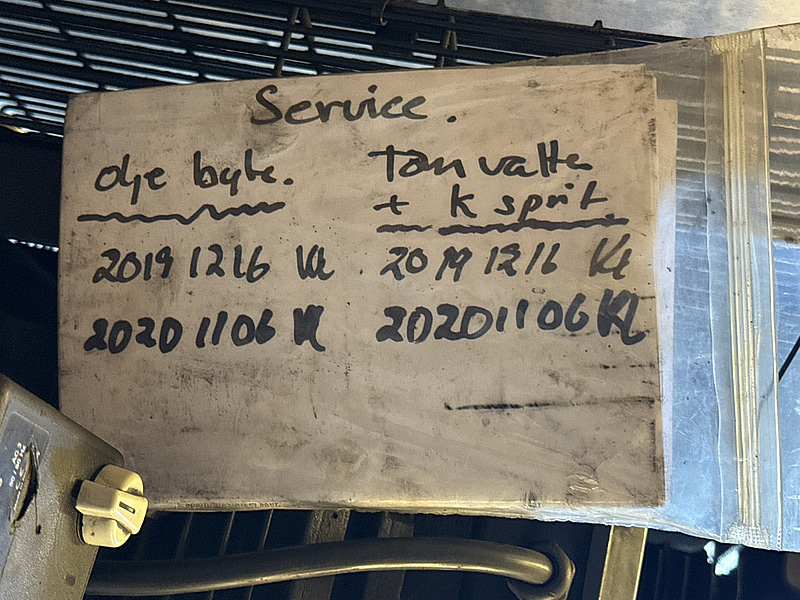 Service.
olje byte.
2019 12 16 KL
2020 11 06 KL
Tömvatten
+ k sprit.
2019 12 16 KL
2020 11 06 KL